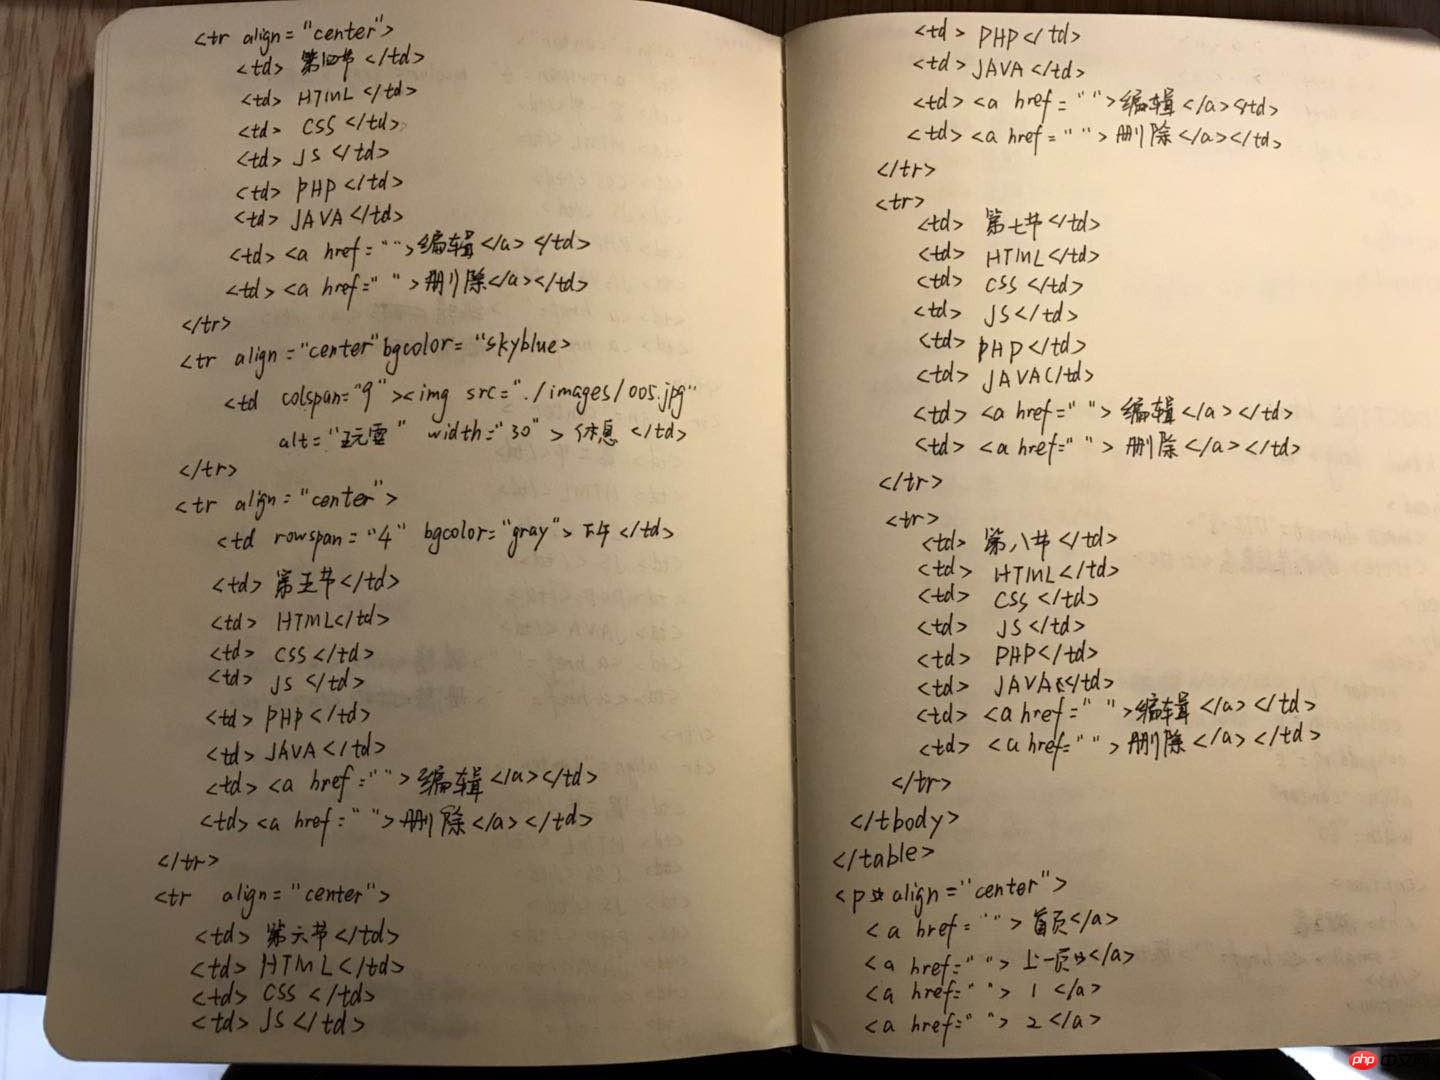 <tr align="center">
<td> 第四节 </td>
<td> HTML </td>
<td> CSS </td>
<td> JS </td>
<td> PHP </td>
<td> JAVA </td>
<td> <a href=""> 编辑 </a> </td>
<td> <a href=" "> 删除 </a></td>
</tr>
<tr align="center" bgcolor="skyblue>
<td colspan="9"><img src="./images/005.jpg"
alt=" " width="30" > 休息 </td>
</tr>
<tr align="center">
<td rowspan="4" bgcolor="gray"> 下午 </td>
<td> 第五节 </td>
<td> HTML</td>
<td> CSS </td>
<td> JS </td>
<td> PHP </td>
<td> JAVA </td>
<td> <a href=""> 编辑 </a></td>
<td> <a href=" "> 删除 </a></td>
</tr>
<tr align="center">
<td> 第六节 </td>
<td> HTML </td>
<td> CSS </td>
<td> JS </td>
<td> PHP</td>
<td> JAVA </td>
<td> <a href=" ">编辑 </a></td>
<td> <a href=" "> 删除 </a></td>
</tr>
<tr>
<td> 第七节 </td>
<td> HTML</td>
<td> CSS </td>
<td> JS </td>
<td> PHP </td>
<td> JAVA</td>
<td> <a href=" "> 编辑 </a></td>
<td> <a href=" "> 删除 </a></td>
</tr>
<tr>
<td> 第八节 </td>
<td> HTML </td>
<td> CSS </td>
<td> JS </td>
<td> PHP</td>
<td> JAVA </td>
<td> <a href=" ">编辑 </a></td>
<td> <a href=" "> 删除 </a></td>
</tr>
</tbody>
</table>
<p align="center">
<a href=" "> 首页</a>
<a href=" "> 上一页</a>
<a href=" "> 1 </a>
<a href=" "> 2 </a>
php 中文网